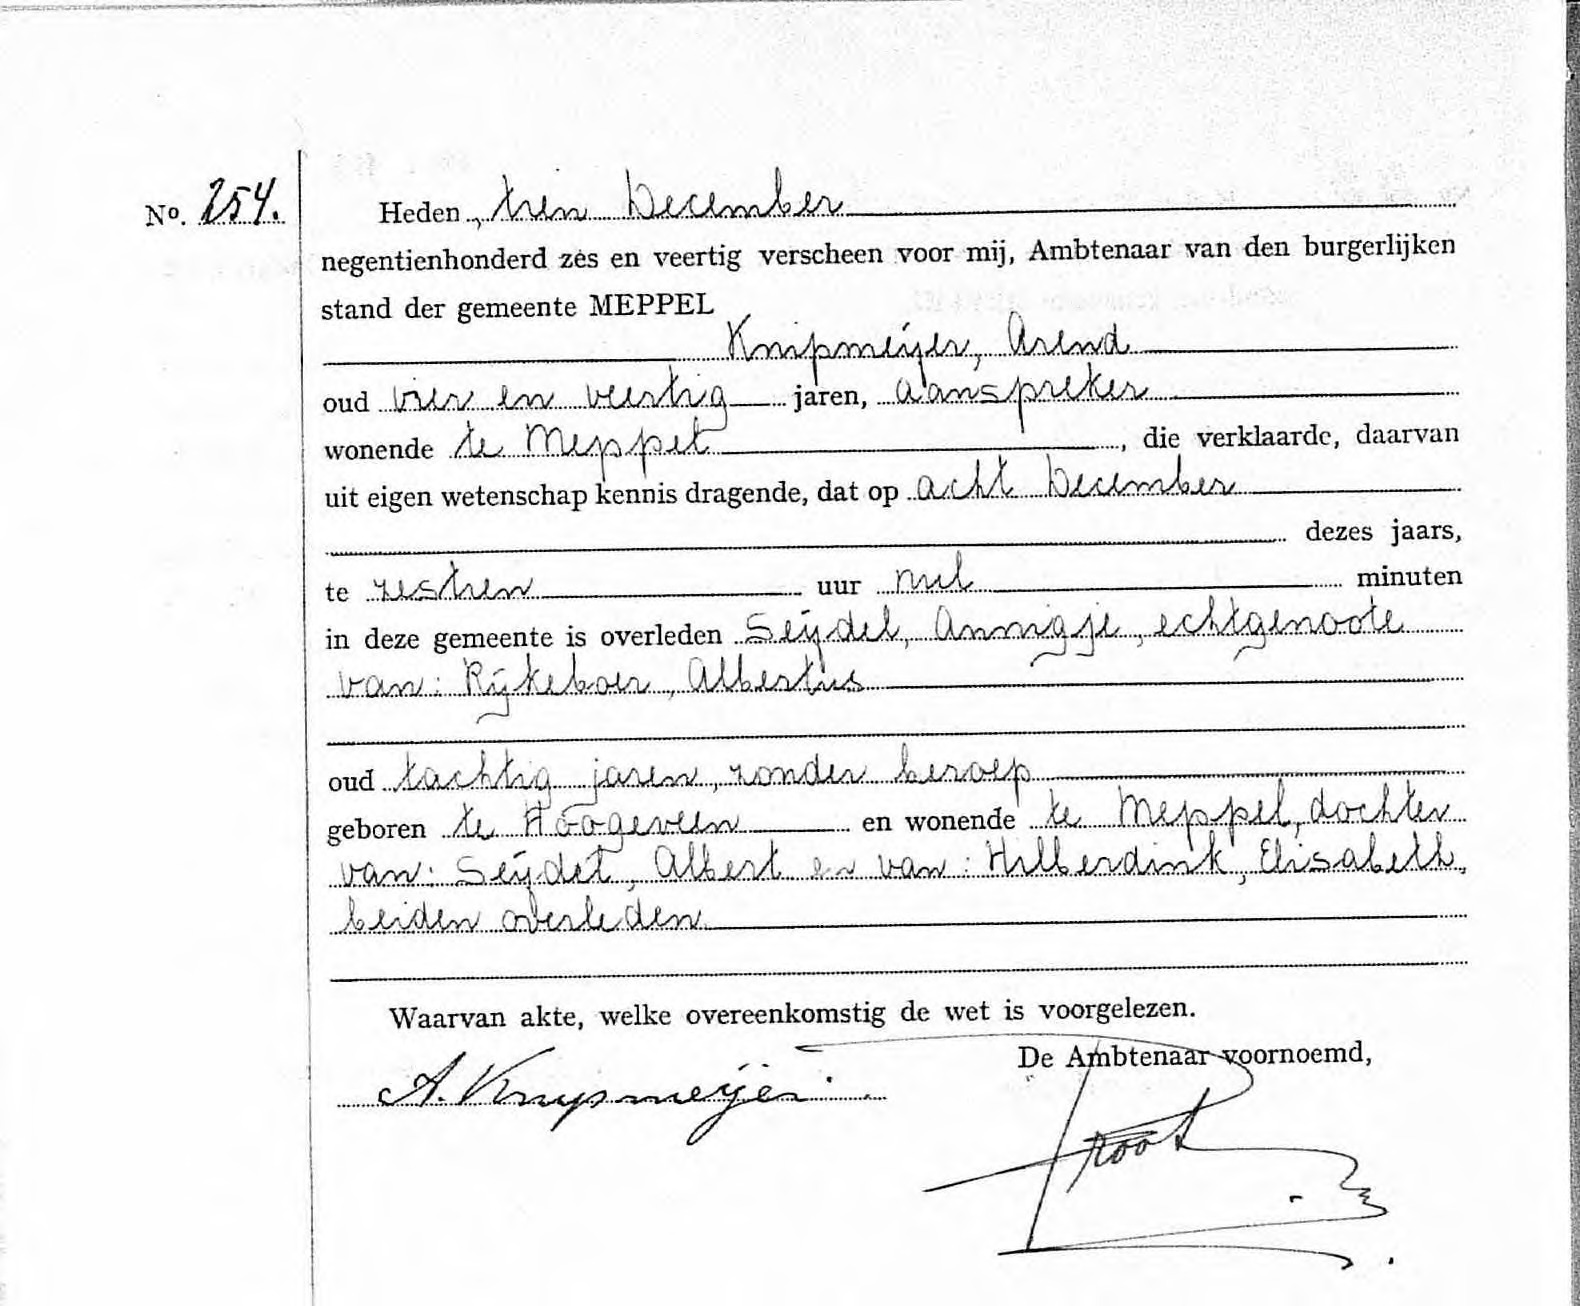 No. 254.
Heden, tien December
negentienhonderd zes en veertig verscheen voor mij, Ambtenaar van den burgerlijken
stand der gemeente MEPPEL
Knipmeijer, Arend
oud vier en veertig jaren, aanspreker
wonende te Meppel, die verklaarde, daarvan
uit eigen wetenschap kennis dragende, dat op acht December
dezes jaars,
te zestien uur nul minuten
in deze gemeente is overleden Seijdel, Annigje, echtgenoote
van: Rijkeboer, Albertus
oud tachtig jaren, zonder beroep
geboren te Hoogeveen en wonende te Meppel, dochter
van: Seijdel, Albert en van: Hilberdink, Elisabeth,
beiden overleden
Waarvan akte, welke overeenkomstig de wet is voorgelezen.
De Ambtenaar voornoemd,
A. Knipmeijer